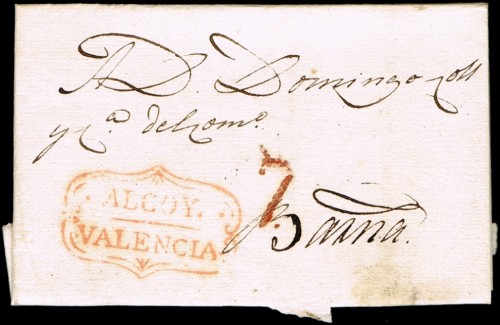 A D. Domingo
y c.ª del com.º
7
ALCOY.
VALENCIA
Barna.